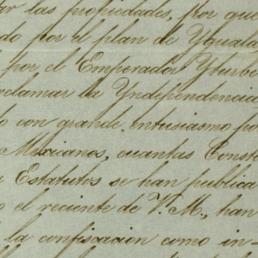 ar las propiedades, por que
do por el plan de Yguala
por el Emperador Yturbi
clamar la Yndependencia
o con grande entusiasmo po
Mexicanos, cuantas Consti
Estatutos se han publica
o el reciente de V. M., han
la confiscacion como in-